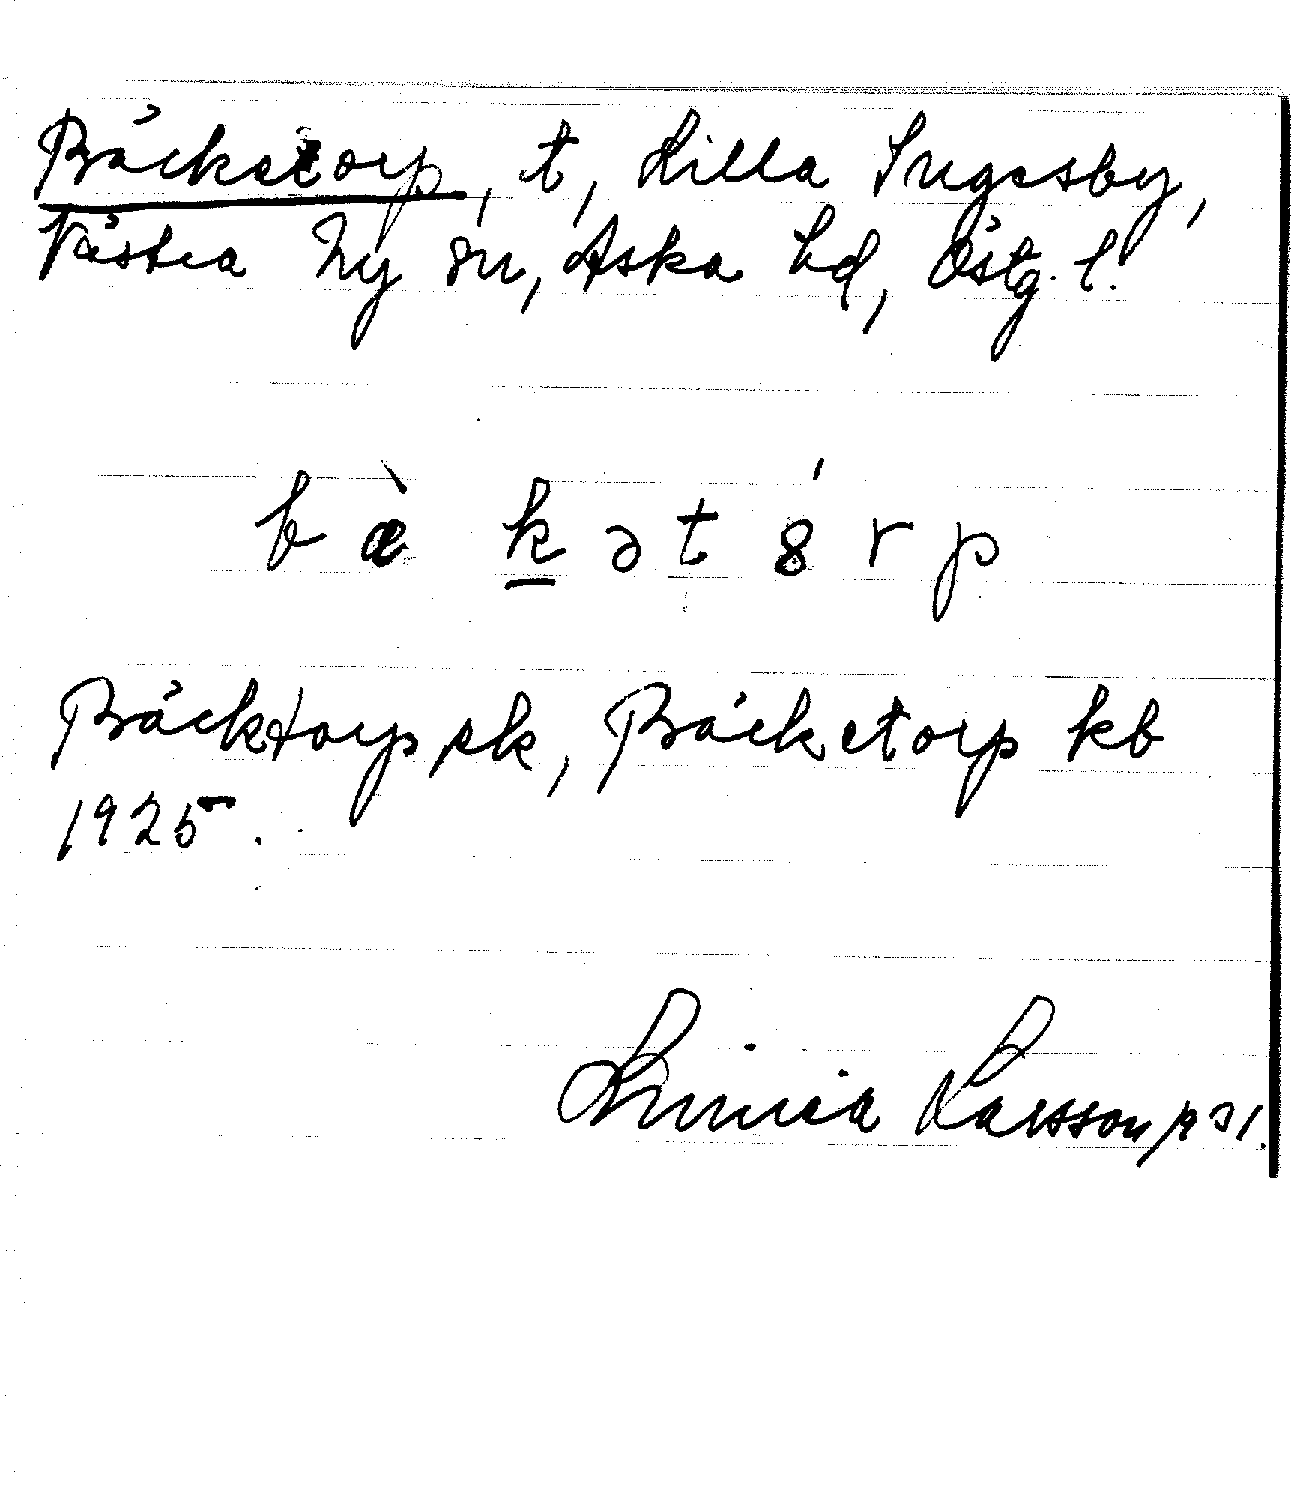 Bäcketorp, t, Lilla Ingesby,
Västra Ny sn, Aska hd, Östg. l.
bæ̀ḵətȣ́rp
Bäcktorp sk, Bäcketorp kb
1925.
Linnea Larsson